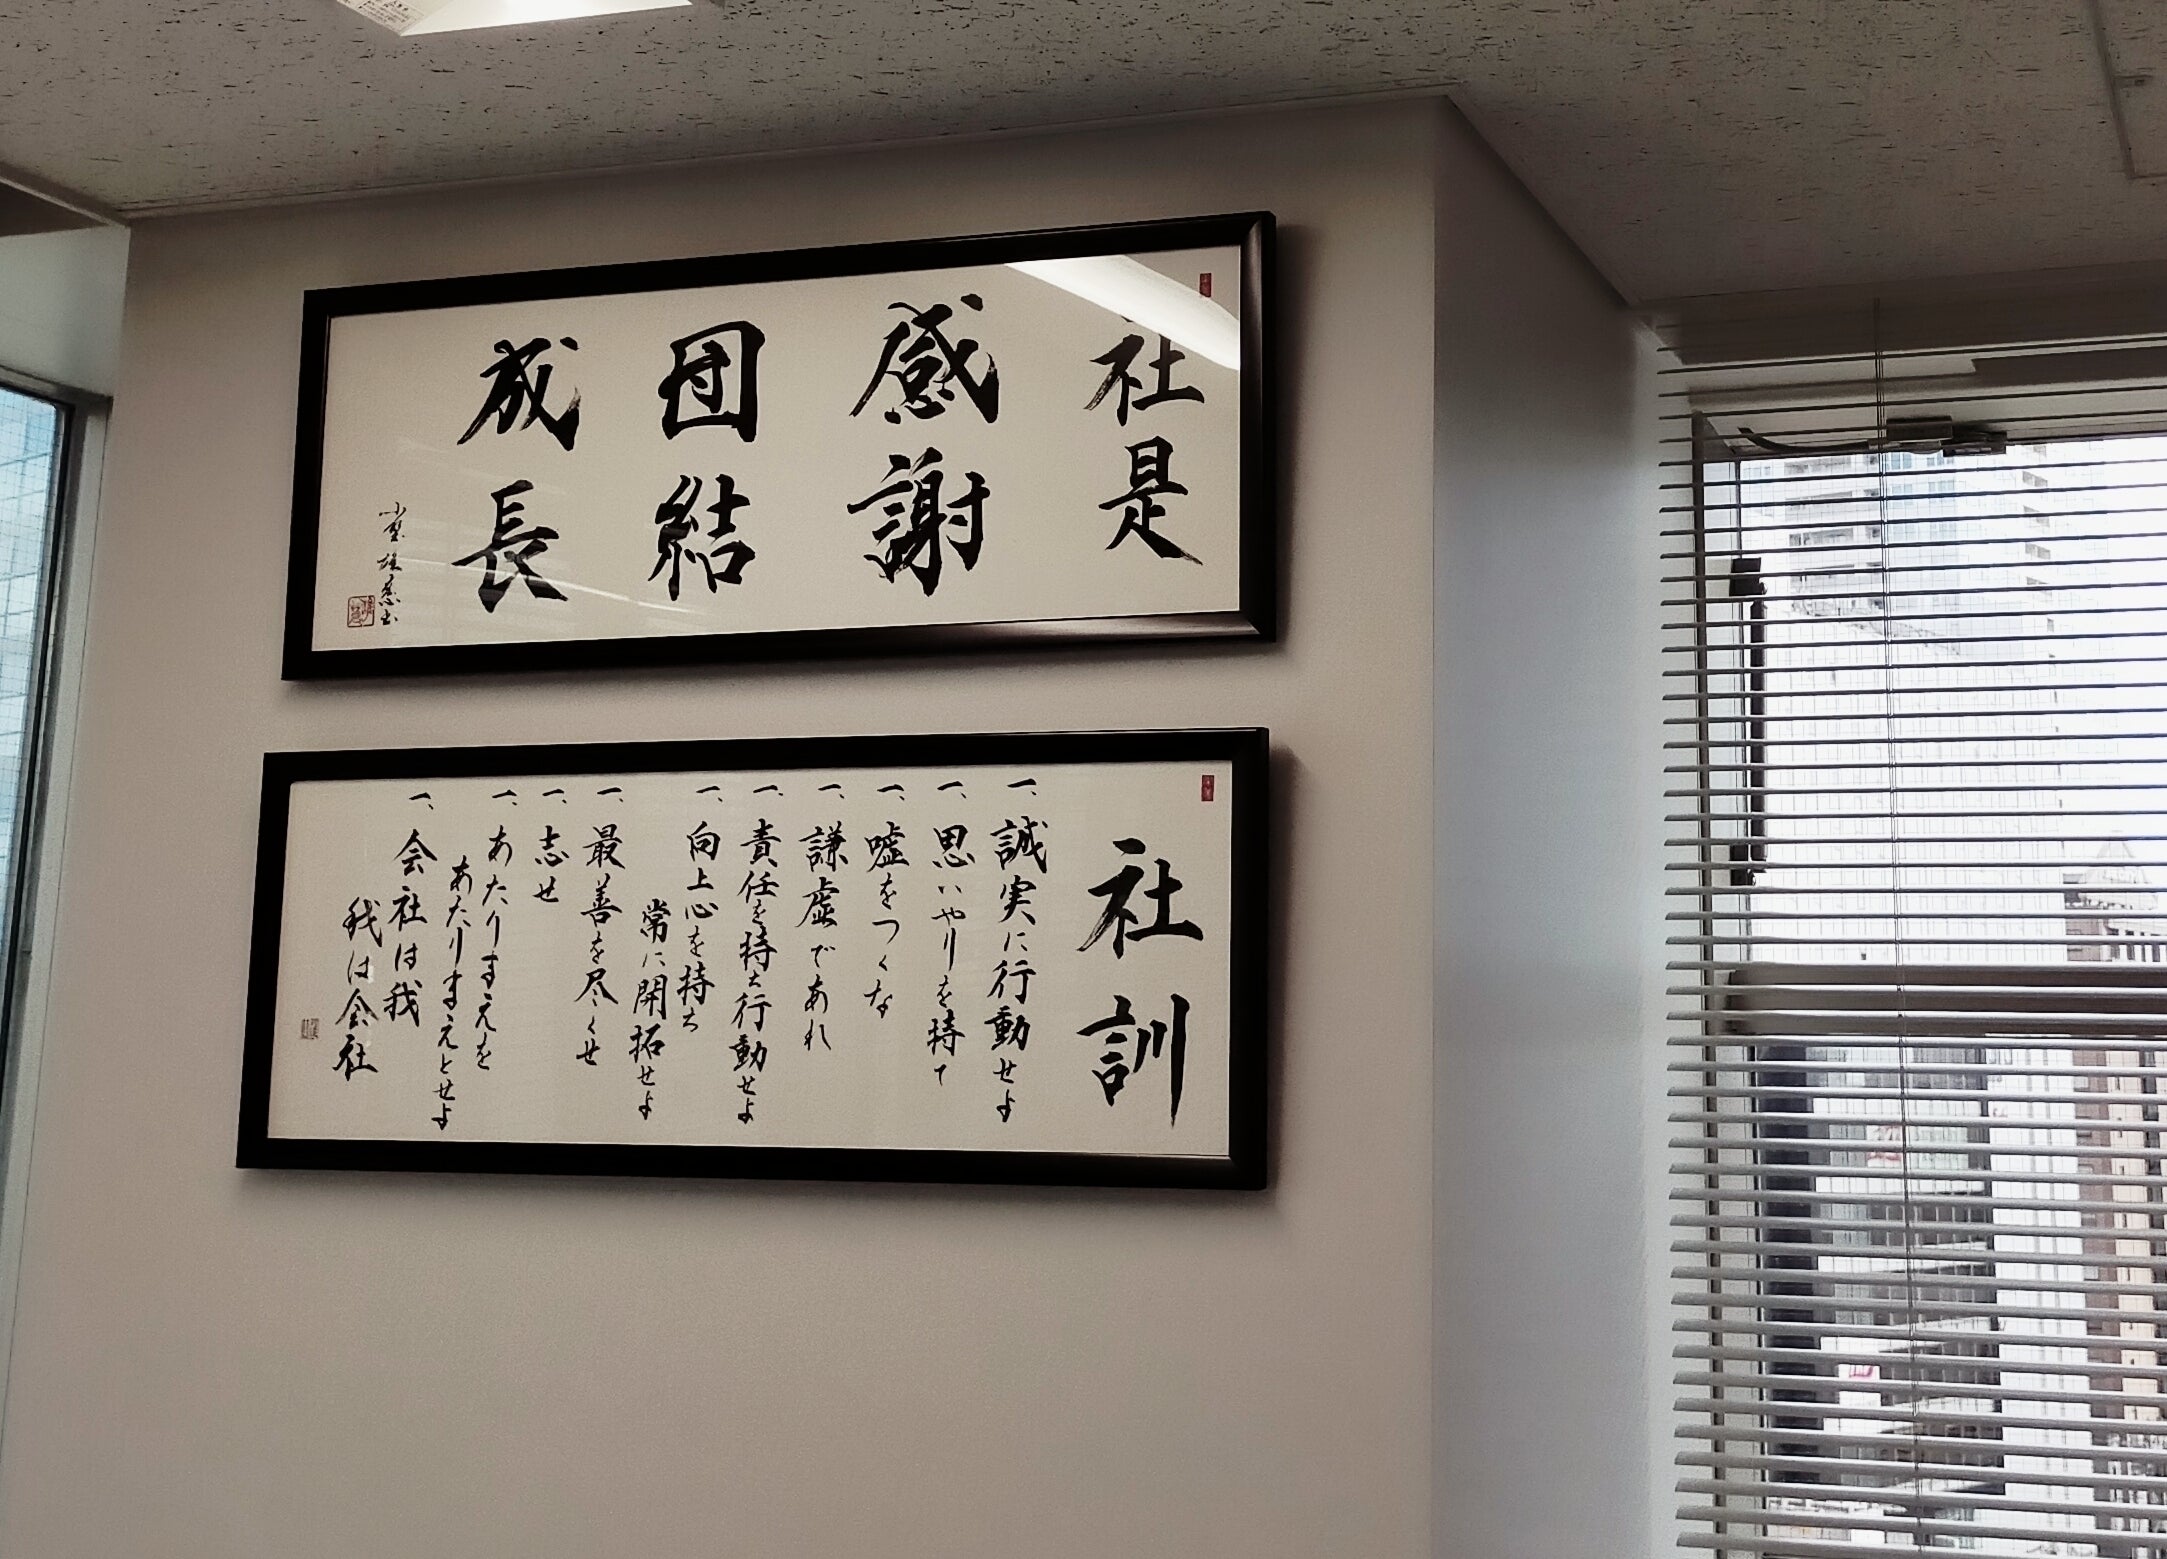 社是
感謝
団結
成長
社訓
一、誠実に行動せよ
一、思いやりを持て
一、嘘をつくな
一、謙虚であれ
一、責任を持ち行動せよ
一、向上心を持ち
常に開拓せよ
一、最善を尽くせ
一、志せ
一、あたりまえを
あたりまえとせよ
一、会社は我
我は会社